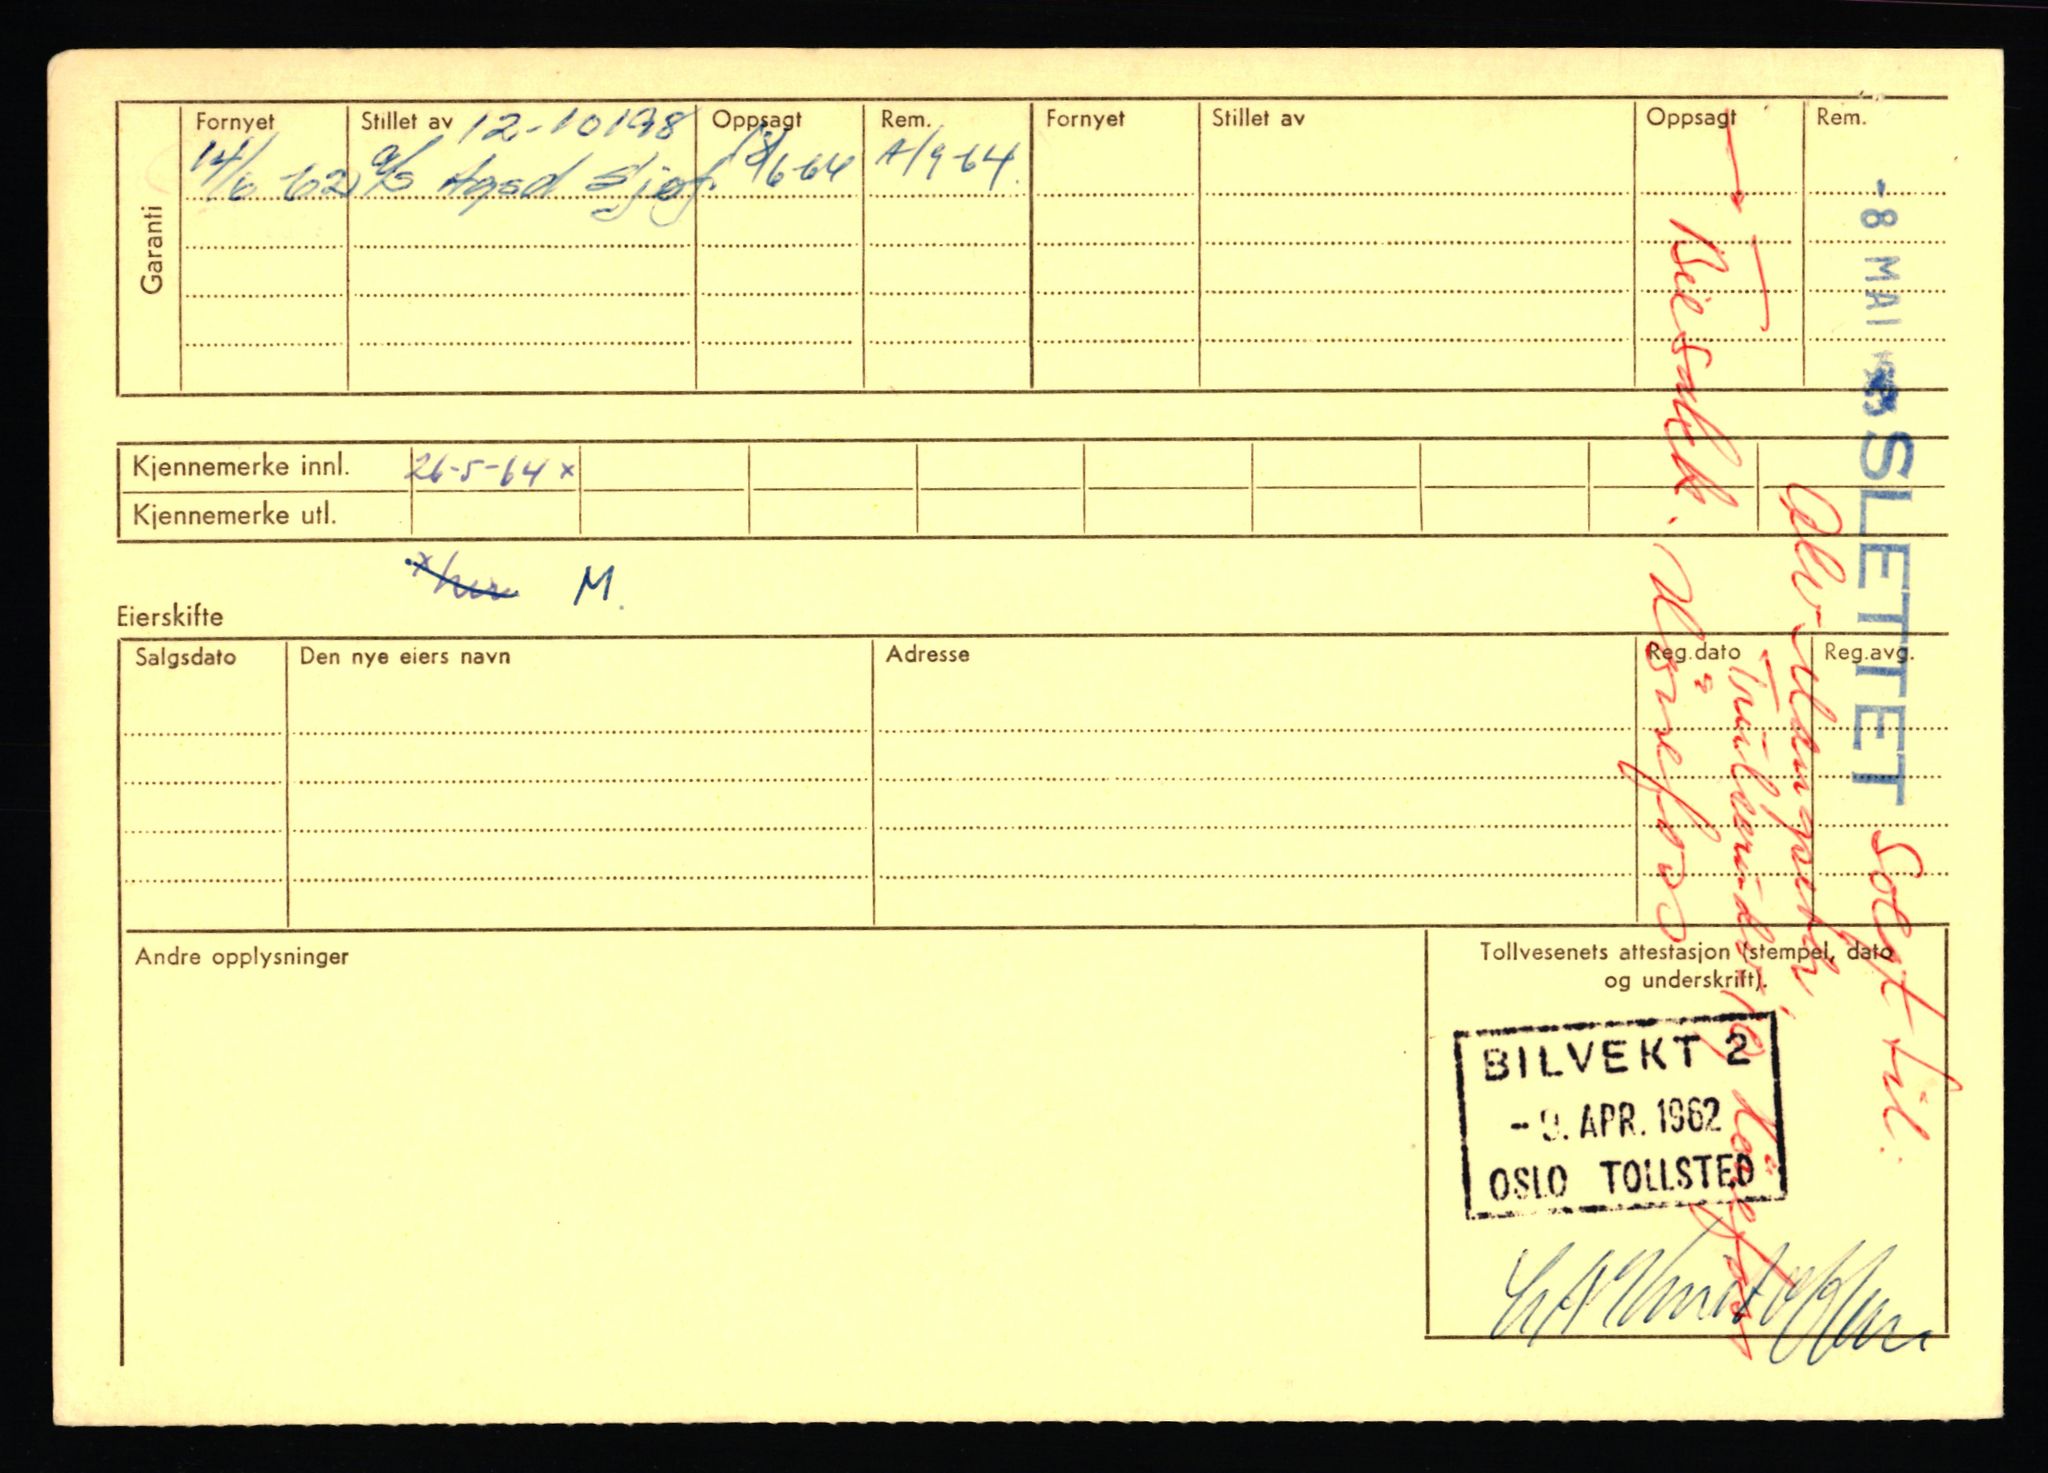 Garanti
Fornyet Stillet av 12-10198 Oppsagt Rem. Fornyet Stillet av Oppsagt Rem.
14/6-62 a/s Agsd Sjøf. 18/6-64 A/9-64.
Kjennemerke innl. 26-5-64 x
Kjennemerke utl.
M.
Eierskifte
Salgsdato Den nye eiers navn Adresse Reg.dato Reg.avg.
Andre opplysninger
Tollvesenets attestasjon (stempel, dato
og underskrift).
BILVEKT 2
-9. APR. 1962
OSLO TOLLSTED
-8 MAI SLETTET solgt til:
Hønefoss